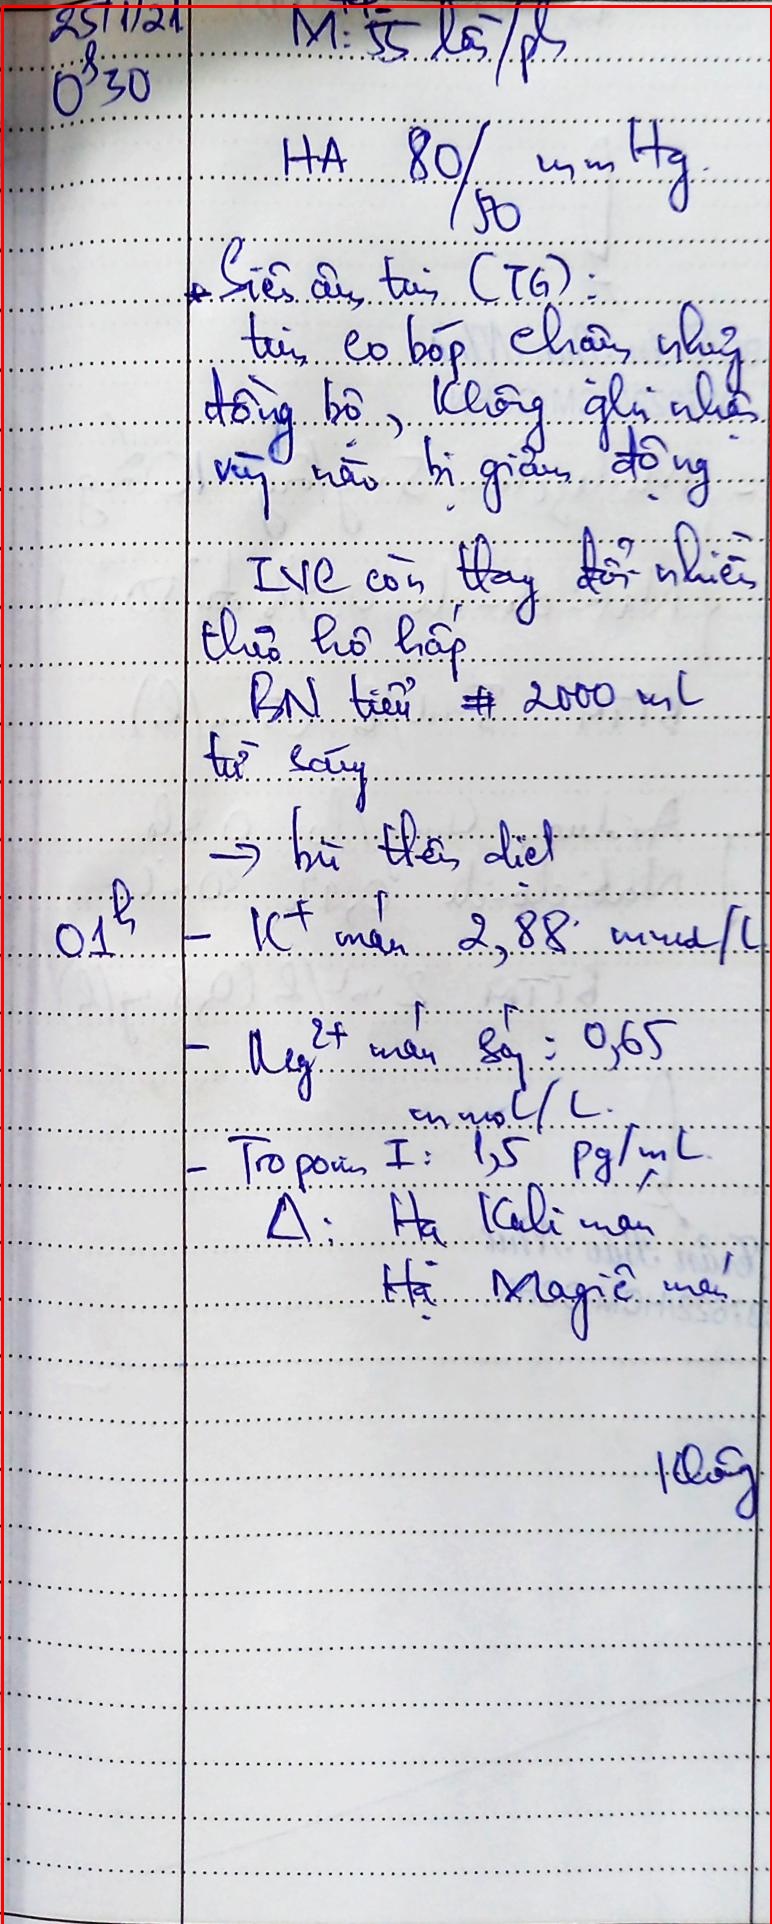 25/1/21 M: 55 lần/ph
0h30
HA 80/50 mmHg.
* Siêu âm tim (TG):
tim co bóp chậm nhưng
đồng bộ, không ghi nhận
vùng nào bị giảm động
IVC còn thay đổi nhiều
theo hô hấp
BN tiểu # 2000 mL
từ sáng
→ bù thêm dịch
01h - K+ máu 2,88 mmol/L
- Mg2+ máu sáng: 0,65
mmol/L.
- Troponin I: 1,5 pg/mL.
Δ: Hạ Kali máu
Hạ Magiê máu
Không